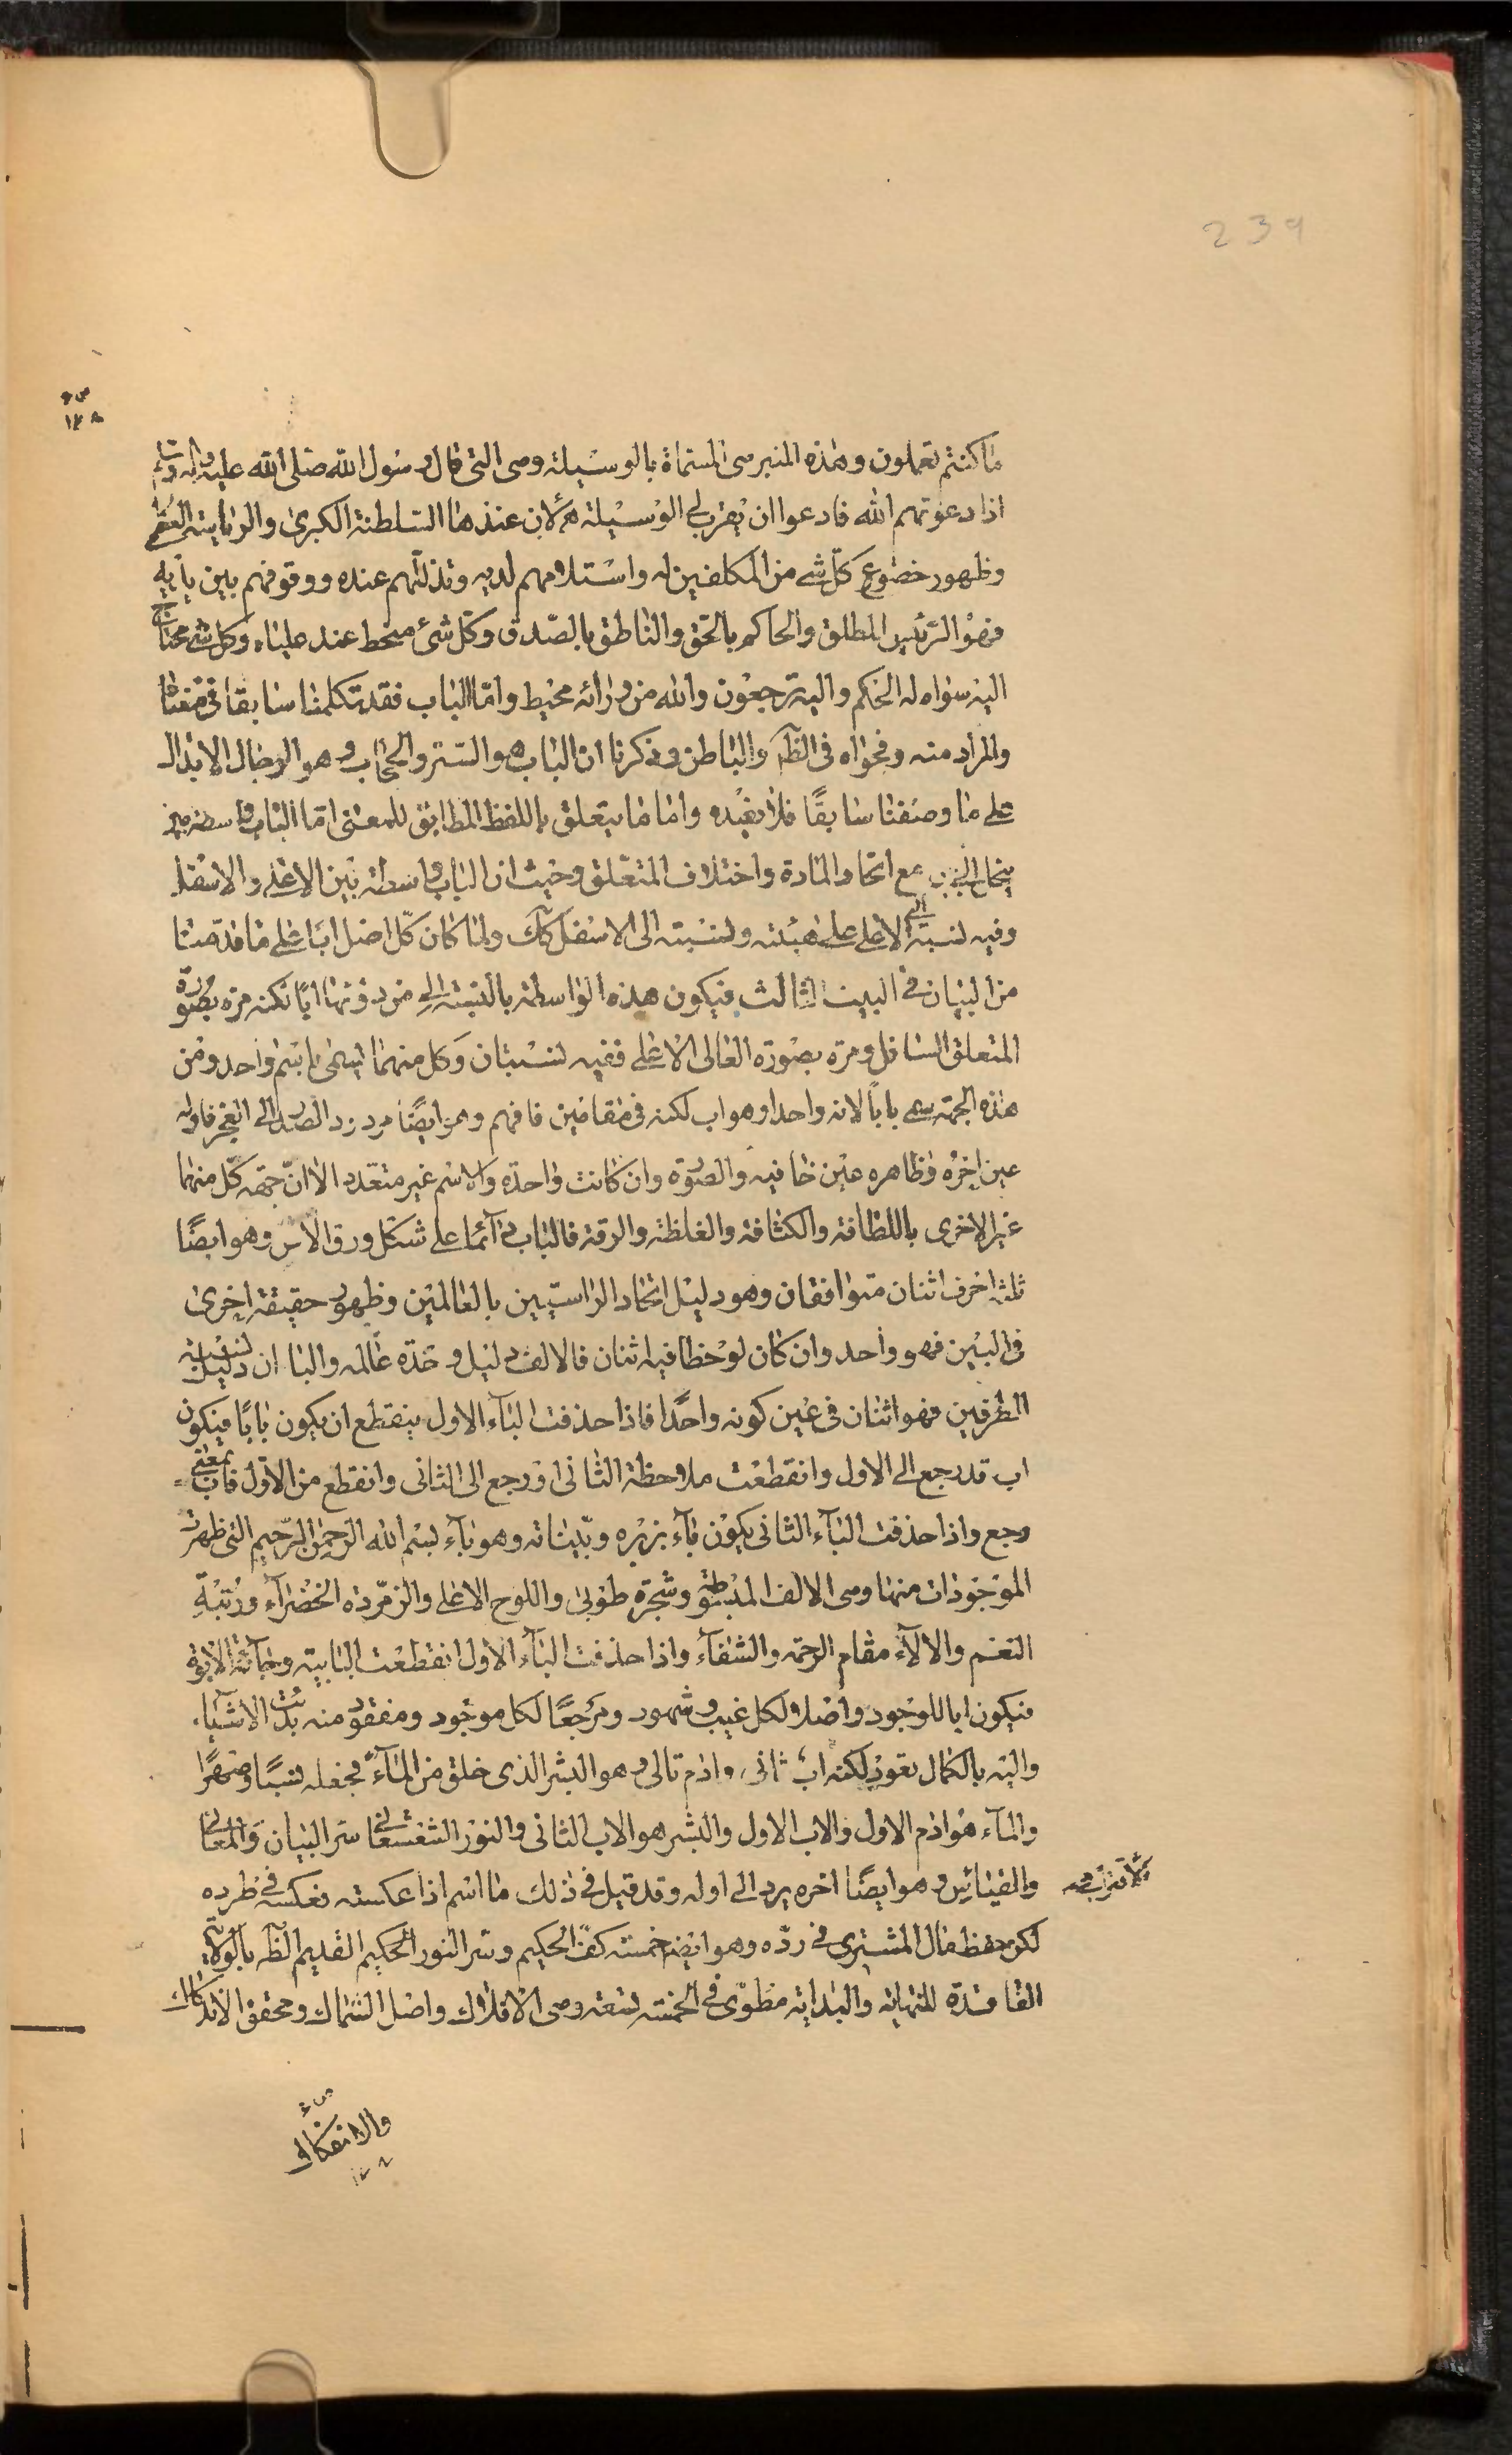 239
١٢٨
ما كنتم تعملون وهذه المنبر هى المسماة بالوسيلة وهى التى قال رسول الله صلى الله عليه وآله
اذا دعوتهم الله فادعوا ان يقرب لى الوسيلة لان عندها السلطنة الكبرى والرياسة العظمى
وظهور خضوع كل شئ من المكلفين له واستلامهم لديه وتذللهم عنده ووقوفهم بين يديه
فهو الرئيس المطلق والحاكم بالحق والناطق بالصدق وكل شئ منحط عند علياه وكل شئ محتاج
اليه سواه له الحكم واليه ترجعون والله من ورائه محيط واما الباب فقد تكلمنا سابقا فى
والمراد منه وفحواه فى الظه والباطن وذكرنا ان الباب هو الستر والحجاب وهو الرجال الابدال
على ما وصفنا سابقًا فلا نعيده واما ما يتعلق باللفظ المطابق للمعنى اما الباب واسطة
مع اتحاد المادة واختلاف المتعلق وحيث ان الباب واسطة بين الاعلى والاسفل
وفيه نسبة الى الاعلى على هيئته ونسبته الى الاسفل كك ولما كان كل اصل ابًا على ما قدمنا
من البيان فى البيت الثالث فيكون هذه الواسطة بالنسبة الى من دونها ابًا لكنه مرة بصورة
المتعلق السافل ومرة بصورة العالى الاعلى ففيه نسبتان وكل منهما يسمى باسم واحد ومن
هذه الجهة سمى بابًا لانه واحد وهو اب لكنه فى مقامين فافهم وهو ايضًا مرد رد الصدر الى العجز فاوله
عين اخره وظاهره عين خافيه والصورة وان كانت واحدة والاسم غير متعدد الا ان جهة كل منهما
غير الاخرى باللطافة والكثافة والغلظة والرقة فالباب دآئما على شكل ورق الآس وهو ايضًا
ثلثة احرف اثنان متوافقان وهو دليل اتحاد الراسيين بالعالمين وظهور حقيقة اخرى
فى البين فهو واحد وان كان لوحظا فيه اثنان فالالف دليل وحدة عالمه والبا ان دليل نسبة
الطرفين فهو اثنان فى عين كونه واحدًا فاذا حذفت البآء الاول ينقطع ان يكون بابًا فيكون
اب قد رجع الى الاول وانقطعت ملاحظة الثانى او رجع الى الثانى وانقطع من الاول فآب بمعنى
رجع واذا حذفت البآء الثانى يكون بآء بزبره وبيناته وهو بآء بسم الله الرحمن الرحيم التى ظهرت
الموجودات منها وهى الالف المبسوطة وشجرة طوبى واللوح الاعلى والزمردة الخضرآء ورتبة
النعم والالآء مقام الرحمة والشفآء واذا حذفت البآء الاول انقطعت البابية وجآئت الابوة
فيكون ابا للوجود واصلا لكل غيب وشهود ومرجعًا لكل موجود ومفقود منه بدئت الاشيآء
واليه بالكمال تعود لكنه اب ثانى وادم تالى وهو البشر الذى خلق من المآء فجعله نسبًا وصهرًا
والمآء هو ادم الاول والاب الاول والبشر هو الاب الثانى والنور الشعشعانى سر البيان والمعانى
وهو ايضًا اخره يرد الى اوله وقد قيل فى ذلك ما اسم اذا عكسته نعكسه فى طرده
لكن حفظ مال المشترى فى رده وهو ايضا خمسة كف الحكيم وسر النور الحكيم القديم الظه بالولاية
القاصدة للنهاية والبداية مطوى فى الخمسة لتسعة وهى الافلاك واصل السماك ومحقق الادراك
والانفكاك
١٢٨